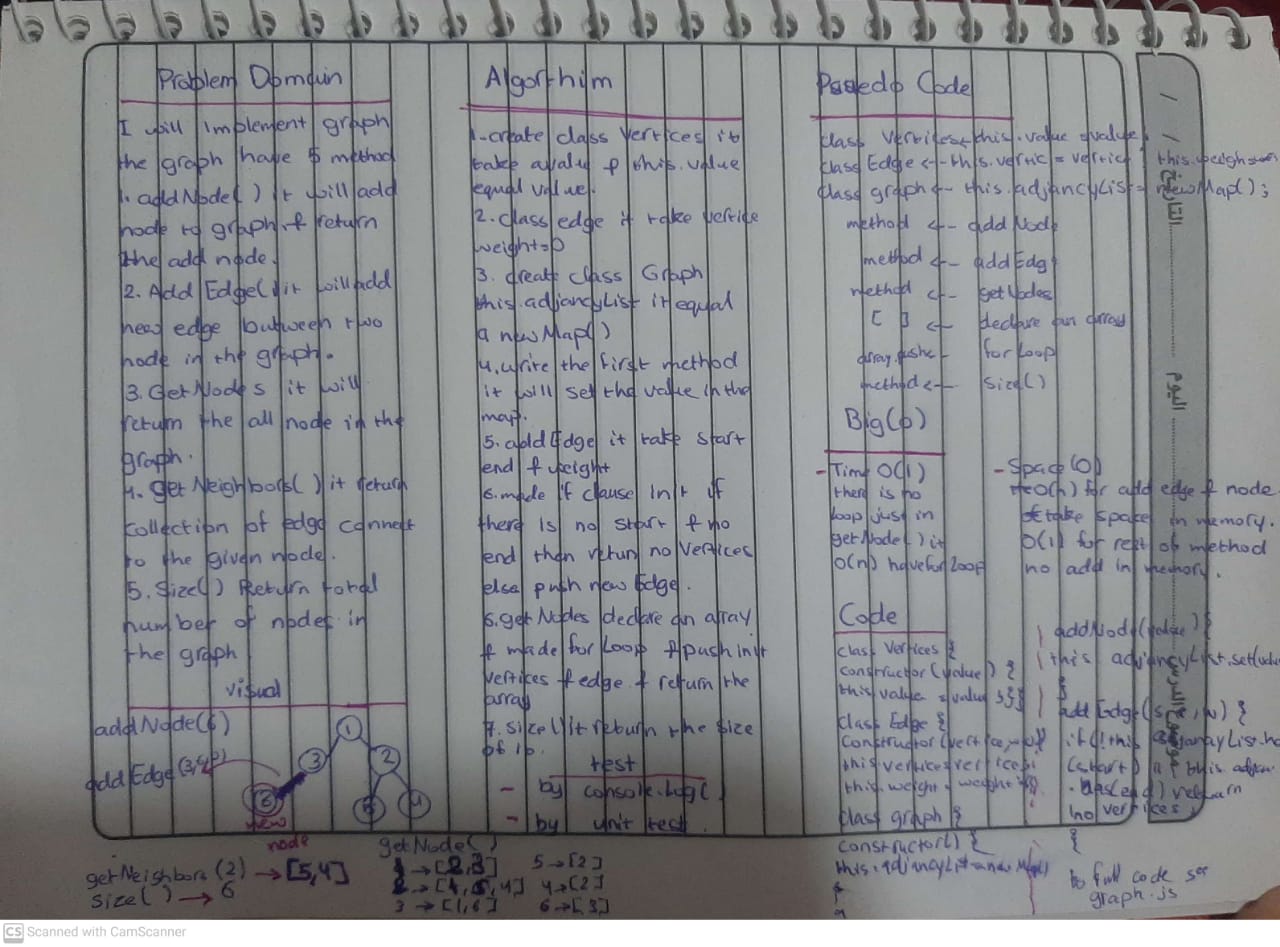 Problem Domain
I will implement graph
the graph have 5 method
1. addNode() it will add
node to graph & return
the add node.
2. Add Edge() it will add
new edge between two
node in the graph.
3. GetNodes it will
return the all node in the
graph.
4. getNeighbors() it return
collection of edge connect
to the given node.
5. Size() Return total
number of nodes in
the graph
visual
addNode(6)
addEdge(3,6)
1
3
2
6
5
4
new
node
getNeighbors(2) → [5,4]
size() → 6
getNode()
1 → [2,3]
2 → [1,5,4]
3 → [1,6]
5 → [2]
4 → [2]
6 → [3]
Algorthim
1-create class vertices it
take a valu & this.value
equal value.
2. class edge it take vertice
weight=0
3. create class Graph
this.adjancyList it equal
a newMap()
4. write the first method
it will set the value in the
map.
5. addEdge it take start
end & weight
6. made if clause in it if
there is no start & no
end then return no vertices
else push new Edge.
6. getNodes declare an array
& made for Loop & push in it
vertices & edge & return the
array
7. size() it return the size
of ib.
test
- by console.log()
- by unit test.
Code
class Vertices ← this.value = value
class Edge ← this.vertic = vertic
class graph ← this.adjancyList = newMap();
method ← addNode
method ← addEdg
method ← getNodes
[ ] ← declare an array
array.push ← for loop
method ← size()
Big(o)
- Time O(1)
there is no
loop just in
getNode() it
O(n) have for loop
- Space(O)
O(n) for add edge & node
take space in memory.
O(1) for rest of method
no add in memory.
Code
class vertices {
constructor(value) {
this value = value }}
class Edge {
this.weight = weight
class graph {
constructor() {
}
addNode(value) {
}
addEdge(
(start)
return
no vertices
}
to full code see
graph.js
التاريخ
اليوم
CS Scanned with CamScanner